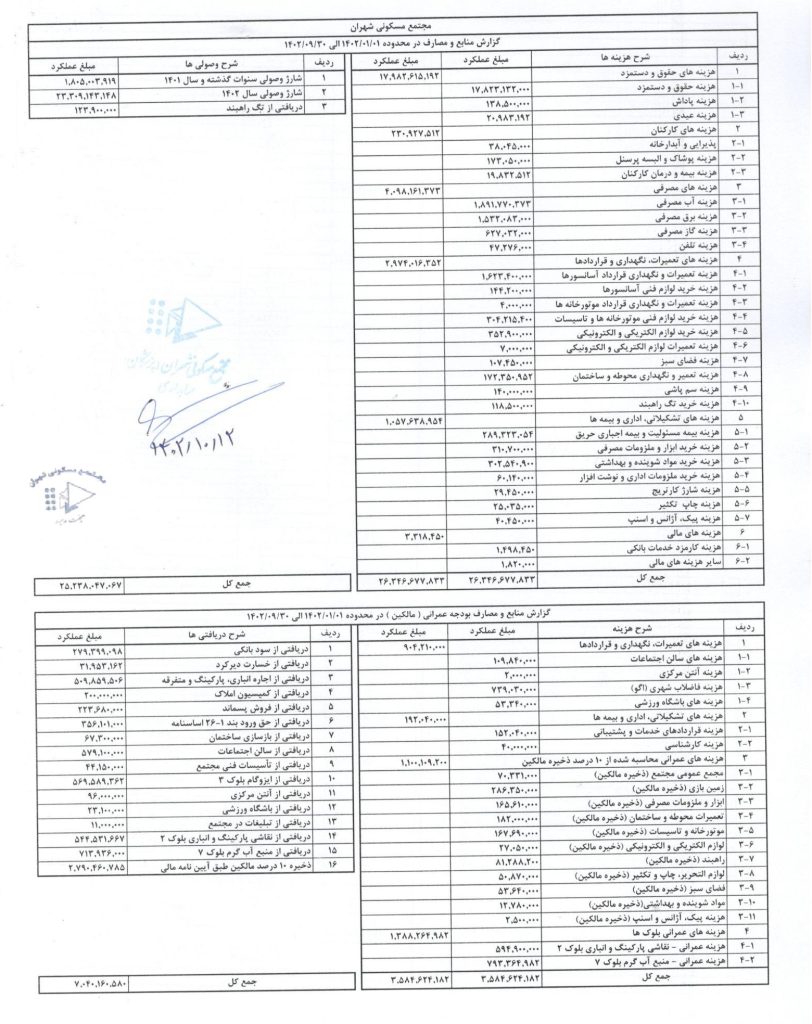 مجتمع مسکونی شهران
گزارش منابع و مصارف در محدوده ۱۴۰۲/۰۱/۰۱ الی ۱۴۰۲/۰۹/۳۰
ردیف شرح هزینه ها مبلغ عملکرد مبلغ عملکرد
۱ هزینه های حقوق و دستمزد ۱۷,۹۸۲,۶۱۵,۱۹۲
۱-۱ هزینه حقوق و دستمزد ۱۷,۸۲۳,۱۳۲,۰۰۰
۱-۲ هزینه پاداش ۱۳۸,۵۰۰,۰۰۰
۱-۳ هزینه عیدی ۲۰,۹۸۳,۱۹۲
۲ هزینه های کارکنان ۲۳۰,۹۲۷,۵۱۲
۲-۱ پذیرایی و آبدارخانه ۳۸,۰۴۵,۰۰۰
۲-۲ هزینه پوشاک و البسه پرسنل ۱۷۳,۰۵۰,۰۰۰
۲-۳ هزینه بیمه و درمان کارکنان ۱۹,۸۳۲,۵۱۲
۳ هزینه های مصرفی ۴,۰۹۸,۱۶۱,۳۷۳
۳-۱ هزینه آب مصرفی ۱,۸۹۱,۷۷۰,۳۷۳
۳-۲ هزینه برق مصرفی ۱,۵۳۲,۰۸۳,۰۰۰
۳-۳ هزینه گاز مصرفی ۶۲۷,۰۳۲,۰۰۰
۳-۴ هزینه تلفن ۴۷,۲۷۶,۰۰۰
۴ هزینه های تعمیرات، نگهداری و قراردادها ۲,۹۷۴,۰۱۶,۳۵۲
۴-۱ هزینه تعمیرات و نگهداری قرارداد آسانسورها ۱,۶۲۳,۴۰۰,۰۰۰
۴-۲ هزینه خرید لوازم فنی آسانسورها ۱۴۴,۲۰۰,۰۰۰
۴-۳ هزینه تعمیرات و نگهداری قرارداد موتورخانه ها ۴,۰۰۰,۰۰۰
۴-۴ هزینه خرید لوازم فنی موتورخانه ها و تاسیسات ۳۰۴,۲۱۵,۴۰۰
۴-۵ هزینه خرید لوازم الکتریکی و الکترونیکی ۳۵۲,۹۰۰,۰۰۰
۴-۶ هزینه تعمیرات لوازم الکتریکی و الکترونیکی ۷,۰۰۰,۰۰۰
۴-۷ هزینه فضای سبز ۱۰۷,۴۵۰,۰۰۰
۴-۸ هزینه تعمیر و نگهداری محوطه و ساختمان ۱۷۲,۳۵۰,۹۵۲
۴-۹ هزینه سم پاشی ۱۴۰,۰۰۰,۰۰۰
۴-۱۰ هزینه خرید تگ راهبند ۱۱۸,۵۰۰,۰۰۰
۵ هزینه های تشکیلاتی، اداری و بیمه ها ۱,۰۵۷,۶۳۸,۹۵۴
۵-۱ هزینه بیمه مسئولیت و بیمه اجباری حریق ۲۸۹,۳۲۳,۰۵۴
۵-۲ هزینه خرید ابزار و ملزومات مصرفی ۳۱۰,۷۰۰,۰۰۰
۵-۳ هزینه خرید مواد شوینده و بهداشتی ۳۰۲,۵۴۰,۹۰۰
۵-۴ هزینه خرید ملزومات اداری و نوشت افزار ۶۰,۱۴۰,۰۰۰
۵-۵ هزینه شارژ کارتریج ۲۹,۴۵۰,۰۰۰
۵-۶ هزینه چاپ تکثیر ۲۵,۰۳۵,۰۰۰
۵-۷ هزینه پیک، آژانس و اسنپ ۴۰,۴۵۰,۰۰۰
۶ هزینه های مالی ۳,۳۱۸,۴۵۰
۶-۱ هزینه کارمزد خدمات بانکی ۱,۴۹۸,۴۵۰
۶-۲ سایر هزینه های مالی ۱,۸۲۰,۰۰۰
جمع کل ۲۶,۳۴۶,۶۷۷,۸۳۳ ۲۶,۳۴۶,۶۷۷,۸۳۳
ردیف شرح وصولی ها مبلغ عملکرد
۱ شارژ وصولی سنوات گذشته و سال ۱۴۰۱ ۱,۸۰۵,۰۰۳,۹۱۹
۲ شارژ وصولی سال ۱۴۰۲ ۲۳,۳۰۹,۱۴۳,۱۴۸
۳ دریافتی از تگ راهبند ۱۲۳,۹۰۰,۰۰۰
۱۴۰۲/۱۰/۱۲
مجتمع مسکونی شهران
جمع کل ۲۵,۲۳۸,۰۴۷,۰۶۷
گزارش منابع و مصارف بودجه عمرانی ( مالکین ) در محدوده ۱۴۰۲/۰۱/۰۱ الی ۱۴۰۲/۰۹/۳۰
ردیف شرح هزینه مبلغ عملکرد مبلغ عملکرد
۱ هزینه های تعمیرات، نگهداری و قراردادها ۹۰۴,۲۱۰,۰۰۰
۱-۱ هزینه های سالن اجتماعات ۱۰۹,۸۴۰,۰۰۰
۱-۲ هزینه آنتن مرکزی ۲,۰۰۰,۰۰۰
۱-۳ هزینه فاضلاب شهری (اگو) ۷۳۹,۰۳۰,۰۰۰
۱-۴ هزینه های باشگاه ورزشی ۵۳,۳۴۰,۰۰۰
۲ هزینه های تشکیلاتی، اداری و بیمه ها ۱۹۲,۰۴۰,۰۰۰
۲-۱ هزینه قراردادهای خدمات و پشتیبانی ۱۵۲,۰۴۰,۰۰۰
۲-۲ هزینه کارشناسی ۴۰,۰۰۰,۰۰۰
۳ هزینه های عمرانی محاسبه شده از ۱۰ درصد ذخیره مالکین ۱,۱۰۰,۱۰۹,۲۰۰
۳-۱ مجمع عمومی مجتمع (ذخیره مالکین) ۷۰,۳۳۱,۰۰۰
۳-۲ زمین بازی (ذخیره مالکین) ۲۸۶,۳۵۰,۰۰۰
۳-۳ ابزار و ملزومات مصرفی (ذخیره مالکین) ۱۶۵,۶۱۰,۰۰۰
۳-۴ تعمیرات محوطه و ساختمان (ذخیره مالکین) ۱۸۲,۰۰۰,۰۰۰
۳-۵ موتورخانه و تاسیسات (ذخیره مالکین) ۱۶۷,۶۹۰,۰۰۰
۳-۶ لوازم الکتریکی و الکترونیکی (ذخیره مالکین) ۲۷,۰۵۰,۰۰۰
۳-۷ راهبند (ذخیره مالکین) ۸۱,۲۸۸,۲۰۰
۳-۸ لوازم التحریر، چاپ و تکثیر (ذخیره مالکین) ۵۰,۸۷۰,۰۰۰
۳-۹ فضای سبز (ذخیره مالکین) ۵۳,۶۴۰,۰۰۰
۳-۱۰ مواد شوینده و بهداشتی(ذخیره مالکین) ۱۲,۷۸۰,۰۰۰
۳-۱۱ هزینه پیک، آژانس و اسنپ (ذخیره مالکین) ۲,۵۰۰,۰۰۰
۴ هزینه های عمرانی بلوک ها ۱,۳۸۸,۲۶۴,۹۸۲
۴-۱ هزینه عمرانی - نقاشی پارکینگ و انباری بلوک ۲ ۵۹۴,۹۰۰,۰۰۰
۴-۲ هزینه عمرانی - منبع آب گرم بلوک ۷ ۷۹۳,۳۶۴,۹۸۲
جمع کل ۳,۵۸۴,۶۲۴,۱۸۲ ۳,۵۸۴,۶۲۴,۱۸۲
ردیف شرح دریافتی ها مبلغ عملکرد
۱ دریافتی از سود بانکی ۲۷۹,۳۹۹,۰۹۸
۲ دریافتی از خسارت دیرکرد ۳۱,۹۵۳,۱۶۲
۳ دریافتی از اجاره انباری، پارکینگ و متفرقه ۵۰۹,۸۵۹,۵۰۶
۴ دریافتی از کمیسیون املاک ۲۰۰,۰۰۰,۰۰۰
۵ دریافتی از فروش پسماند ۲۲۳,۶۸۰,۰۰۰
۶ دریافتی از حق ورود بند ۱-۲۶ اساسنامه ۳۵۶,۱۰۱,۰۰۰
۷ دریافتی از بازسازی ساختمان ۶۷,۳۰۰,۰۰۰
۸ دریافتی از سالن اجتماعات ۵۷۹,۱۰۰,۰۰۰
۹ دریافتی از تأسیسات فنی مجتمع ۴۴,۱۵۰,۰۰۰
۱۰ دریافتی از ایزوگام بلوک ۳ ۵۶۹,۵۸۹,۳۶۲
۱۱ دریافتی از آنتن مرکزی ۹۶,۰۰۰,۰۰۰
۱۲ دریافتی از باشگاه ورزشی ۲۳,۱۰۰,۰۰۰
۱۳ دریافتی از تبلیغات در مجتمع ۱۱,۰۰۰,۰۰۰
۱۴ دریافتی از نقاشی پارکینگ و انباری بلوک ۲ ۵۴۴,۵۳۱,۶۶۷
۱۵ دریافتی از منبع آب گرم بلوک ۷ ۷۱۳,۹۳۶,۰۰۰
۱۶ ذخیره ۱۰ درصد مالکین طبق آیین نامه مالی ۲,۷۹۰,۴۶۰,۷۸۵
جمع کل ۷,۰۴۰,۱۶۰,۵۸۰